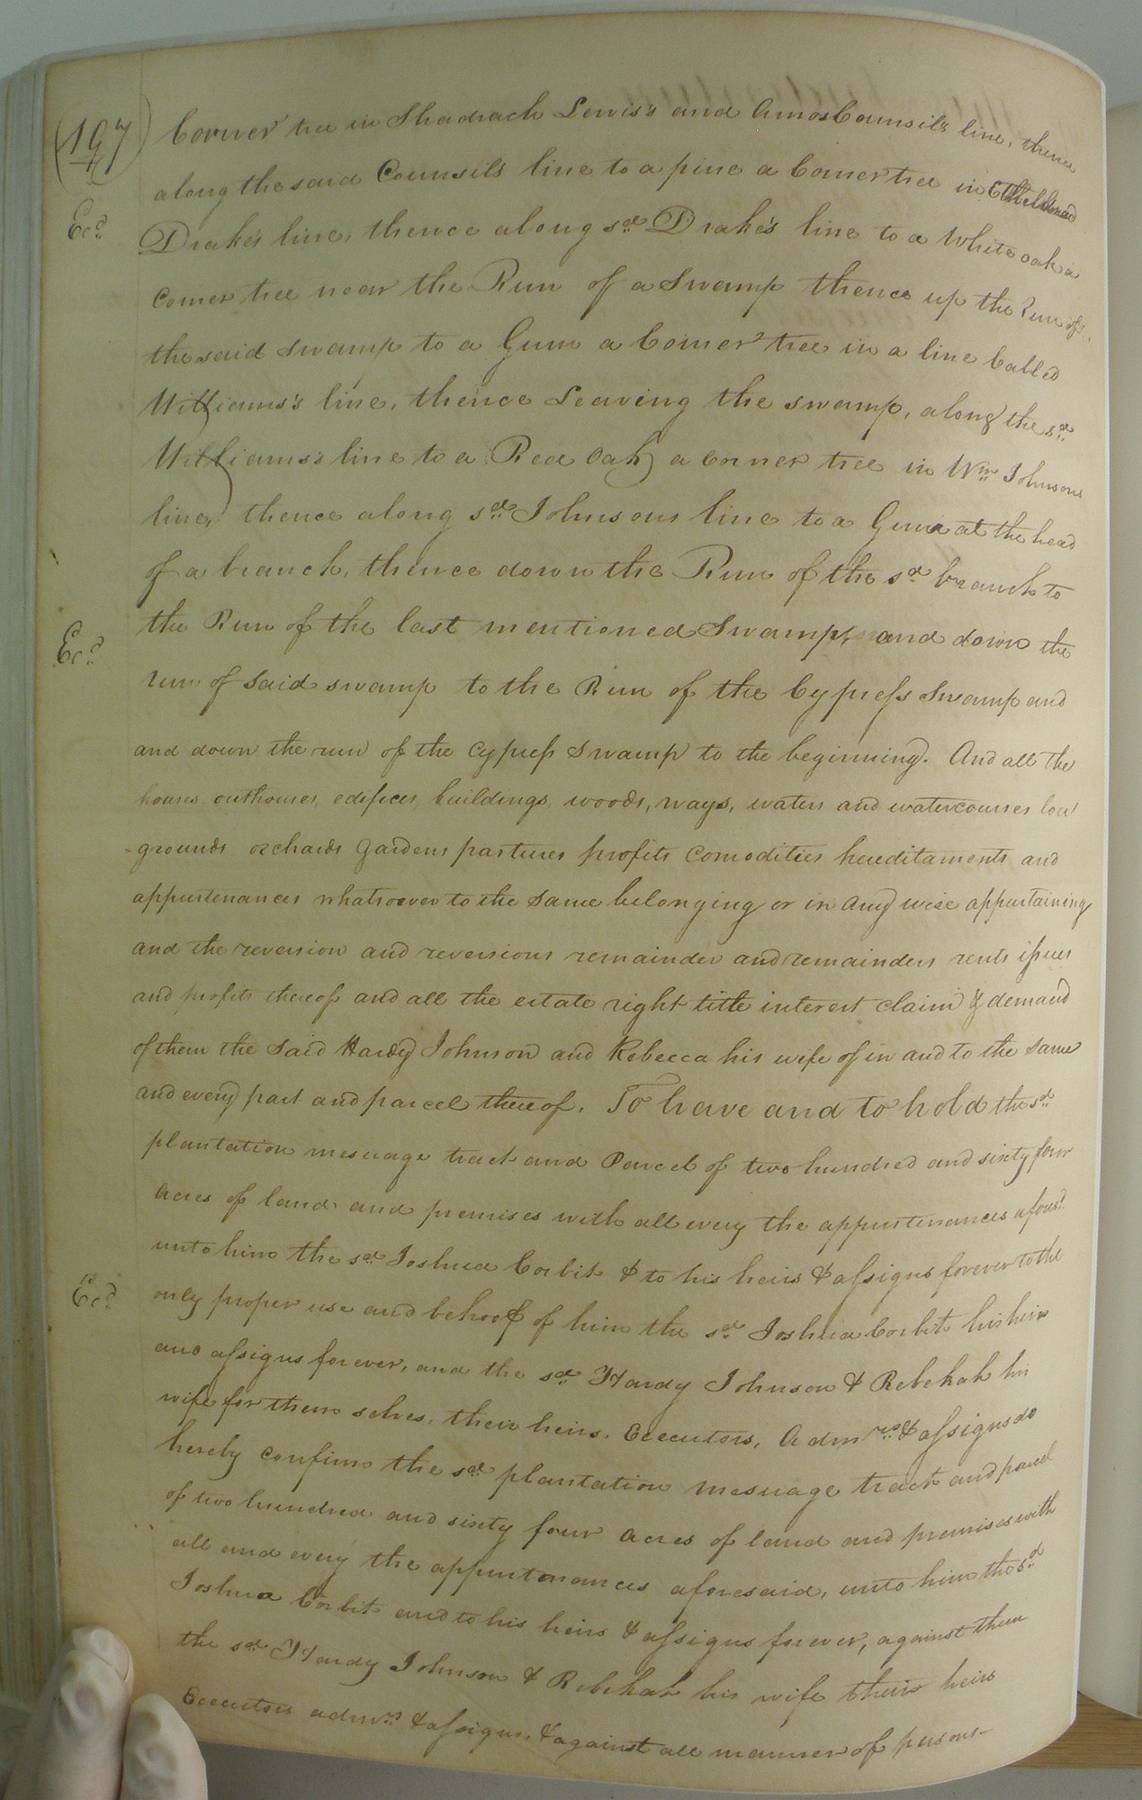 197
Corner tree in Shadrach Lewis's and Amos Council's line, thence
along the said Councils line to a pine a Corner tree in Etheldread
Exd
Drake's line, thence along sd Drake's line to a White oak a
Corner tree near the Run of a Swamp thence up the Run of
the said swamp to a Gum a Corner tree in a line Called
Williams's line, thence Leaving the swamp, along the sd
Williams's line to a Red Oak a corner tree in Wm Johnsons
line, thence along sd Johnsons line to a Gum at the head
of a branch, thence down the Run of the sd branch to
Exd
the Run of the last mentioned Swamp, and down the
run of Said swamp to the Run of the Cypress Swamp and
and down the run of the Cypress Swamp to the beginning. And all the
houses outhouses, edifices, buildings, woods, ways, waters and watercourses low
grounds orchards Gardens pastures profits Comodities hereditaments and
appurtenances whatsoever to the Same belonging or in any wise appurtaining
and the reversion and reversions remainder and remainders rents issues
and profits thereof and all the estate right title interest claim & demand
of them the Said Hardy Johnson and Rebecca his wife of in and to the Same
and every part and parcel thereof. To have and to hold the sd
plantation mesuage tract and Parcel of two hundred and sixty four
acres of land and premises with all every the appurtenances aforesd
unto him the sd Joshua Corbit & to his heirs & assigns forever to the
Exd
only proper use and behoof of him the sd Joshua Corbit his heirs
and assigns forever, and the sd Hardy Johnson & Rebekah his
wife for them selves, their heirs, Executors, Admrs & assigns do
hereby confirm the sd plantation mesuage tract and parcel
of two hundred and sixty four acres of land and premises with
all and every the appurtenances aforesaid, unto him the sd
Joshua Corbit and to his heirs & assigns forever, against them
the sd Hardy Johnson & Rebekah his wife their heirs
Executors admrs & assigns, & against all manner of persons